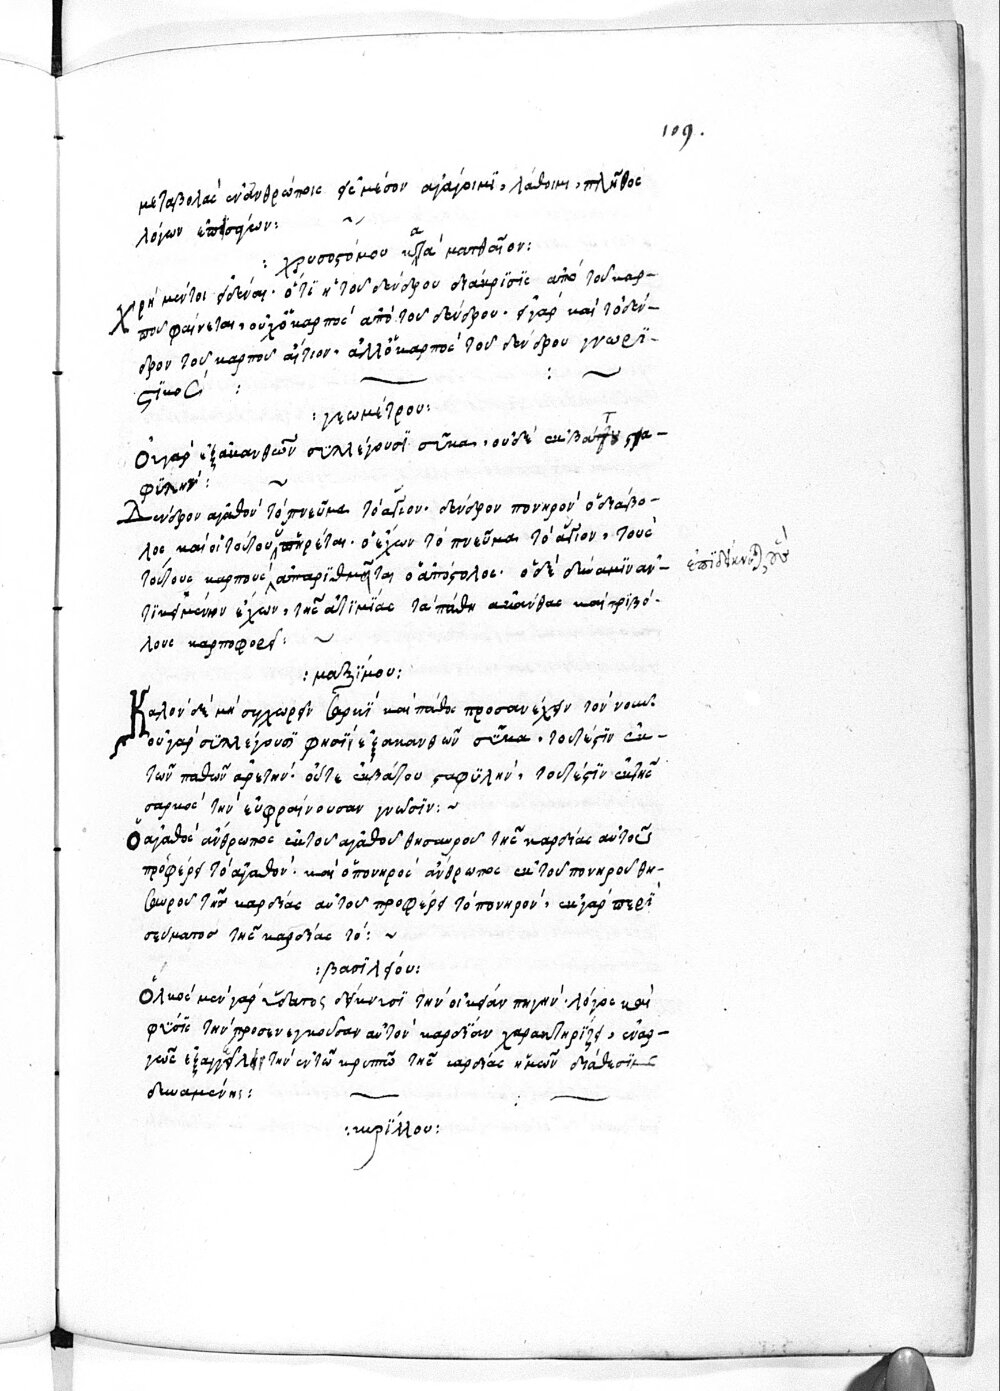 109.
μεταβολὰς ἐν ἀνθρώποις εἰς μέσον ἀγάγοιμι, λάθοιμι, πλῆθος
λόγων :
: χρυσοστόμου κατὰ ματθαῖον :
Χρὴ μέντοι εἰδέναι. ὅτι ἡ τοῦ δένδρου διάκρισις ἀπὸ τοῦ καρ-
ποῦ φαίνεται, οὐχ ὁ καρπὸς ἀπὸ τοῦ δένδρου. εἰ γὰρ καὶ τὸ δέν-
δρον τοῦ καρποῦ αἴτιον. ἀλλ' ὁ καρπὸς τοῦ δένδρου γνωρι-
στικός :
: γεωμέτρου :
Οὐ γὰρ ἐξ ἀκανθῶν συλλέγουσι σῦκα, οὐδὲ ἐκ βάτου στα-
φυλήν :
Δένδρον ἀγαθὸν τὸ πνεῦμα τὸ ἅγιον. δένδρον πονηρὸν ὁ διάβο-
λος, καὶ οἱ τούτου ὑπηρέται. ὁ ἔχων τὸ πνεῦμα τὸ ἅγιον, τοὺς
τούτους καρποὺς ἀπαριθμεῖται ὁ ἀπόστολος. ὁ δὲ δύναμιν ἀν-
τικειμένην ἔχων, τῆς ἀτιμίας τὰ πάθη ἀκάνθας καὶ τριβό-
λους καρποφορεῖ :
: μαξίμου :
Καλὸν δὲ μὴ συγχωρεῖν σαρκὶ καὶ πάθος προσανέχειν τὸν νοῦν.
οὐ γὰρ συλλέγουσι φησὶ ἐξ ἀκανθῶν σῦκα, τουτέστιν ἐκ
τῶν παθῶν ἀρετήν. οὔτε ἐκ βάτου σταφυλήν, τουτέστιν ἐκ τῆς
σαρκὸς τὴν εὐφραίνουσαν γνῶσιν :
Ὁ ἀγαθὸς ἄνθρωπος ἐκ τοῦ ἀγαθοῦ θησαυροῦ τῆς καρδίας αὐτοῦ
προφέρει τὸ ἀγαθόν. καὶ ὁ πονηρὸς ἄνθρωπος ἐκ τοῦ πονηροῦ θη-
σαυροῦ τῆς καρδίας αὐτοῦ προφέρει τὸ πονηρόν, ἐκ γὰρ περι
σεύματος τῆς καρδίας τό :
: βασιλείου :
Ὁλκὸς μὲν γὰρ ὕδατος δείκνυσι τὴν οἰκείαν πηγήν. λόγος καὶ
φύσις τὴν προσενεγκοῦσαν αὐτὸν καρδίαν χαρακτηρίζει, ἐναρ-
γῶς τὴν ἐν τῷ κρυπτῷ τῆς καρδίας ἡμῶν διάθεσιν
δυναμένης :
: κυρίλλου :